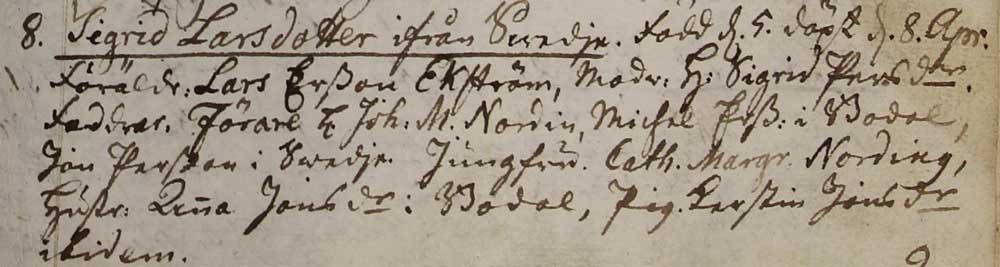 8. Sigrid Larsdotter ifrån Swedje. Född d. 5. döpt d. 8. Apr.
Föräldr: Lars Erßon Ekström, Modr: H: Sigrid Pers dr.
Faddrar. Förare H Joh: M. Nordin, Michel Erß: i Bodal,
Jon Perßon i Swedje. Jungfru. Cath. Margr. Nording,
Hustr: Aña Jons dr i Bodal, Pig. Kerstin Jons dr
ibidem.